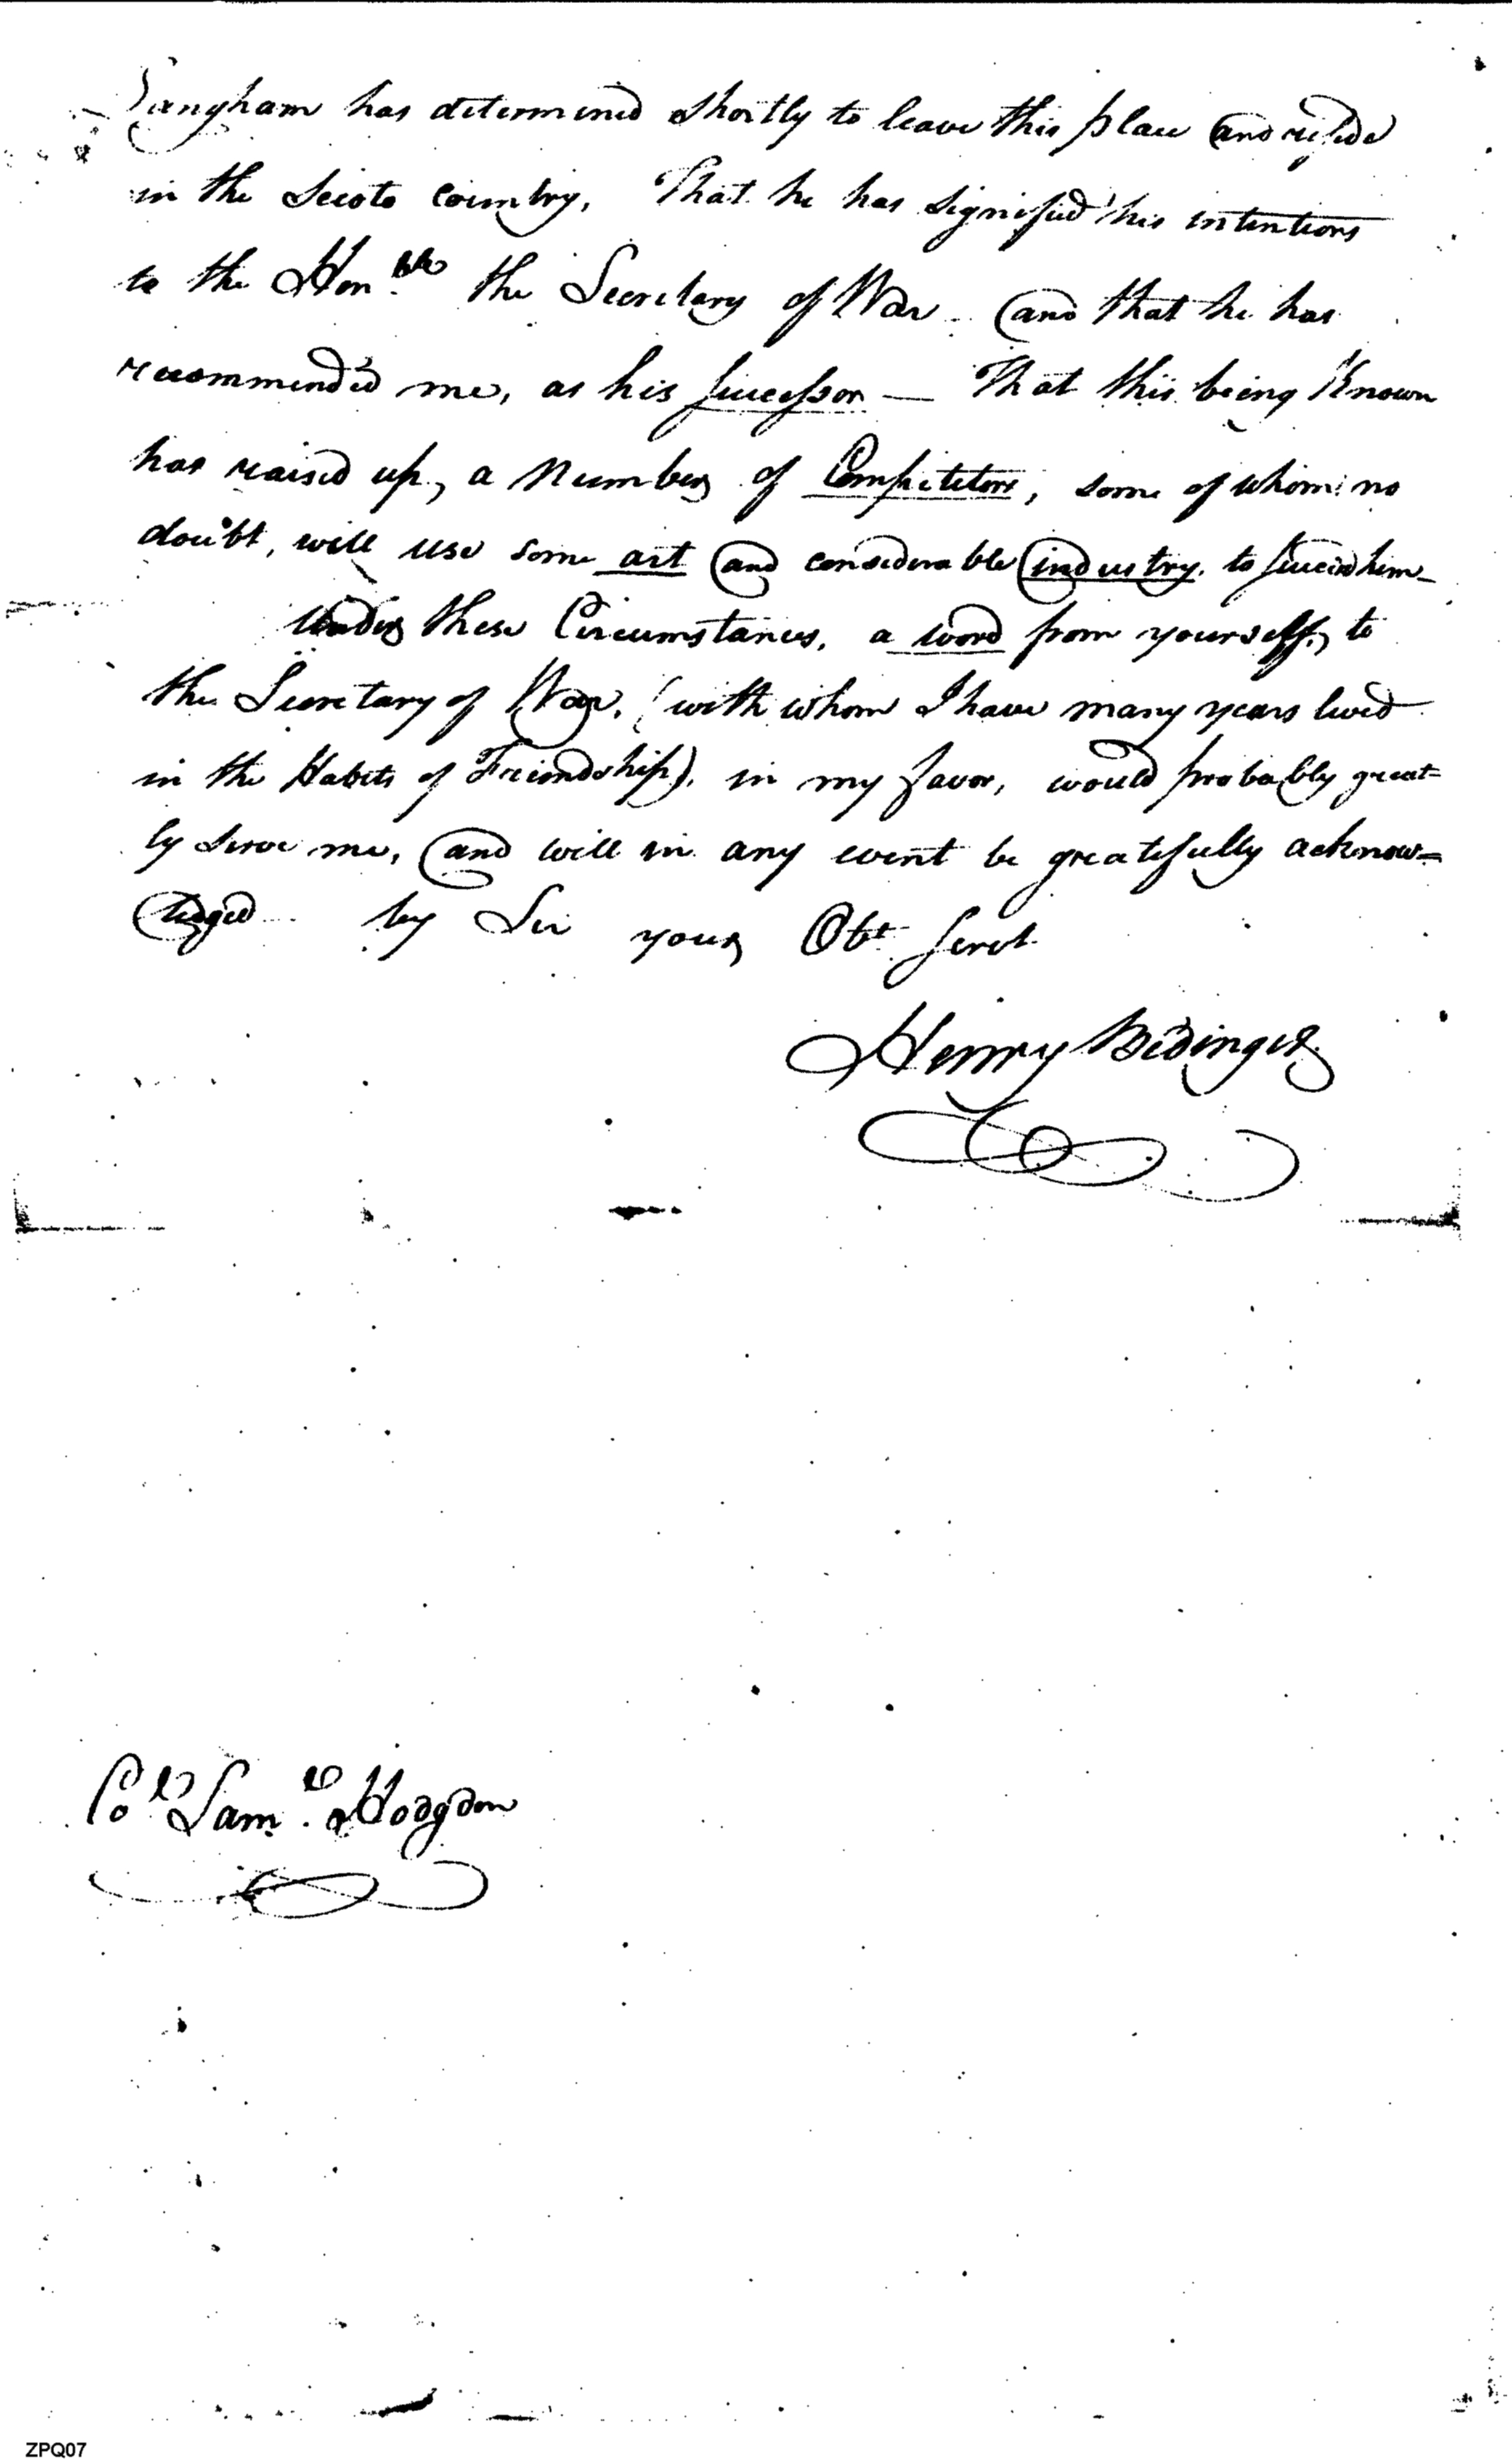 Langham has determined shortly to leave this place and reside
in the Scioto country, That he has signified his intentions
to the Hon.ble the Secretary of War – and that he has
recommended me, as his successor — That this being Known
has raised up, a Number of Competitors, some of whom no
doubt, will use some art and considerable industry, to succeed him –
Under these Circumstances, a word from yourself, to
the Secretary of War, (with whom I have many years lived
in the Habits of Friendship), in my favor, would probably great=
ly serve me, and will in any event be greatefully acknow=
ledged by Sir your Obt Servt
Henry Bedinger
Col Saml. Hodgdon
ZPQ07